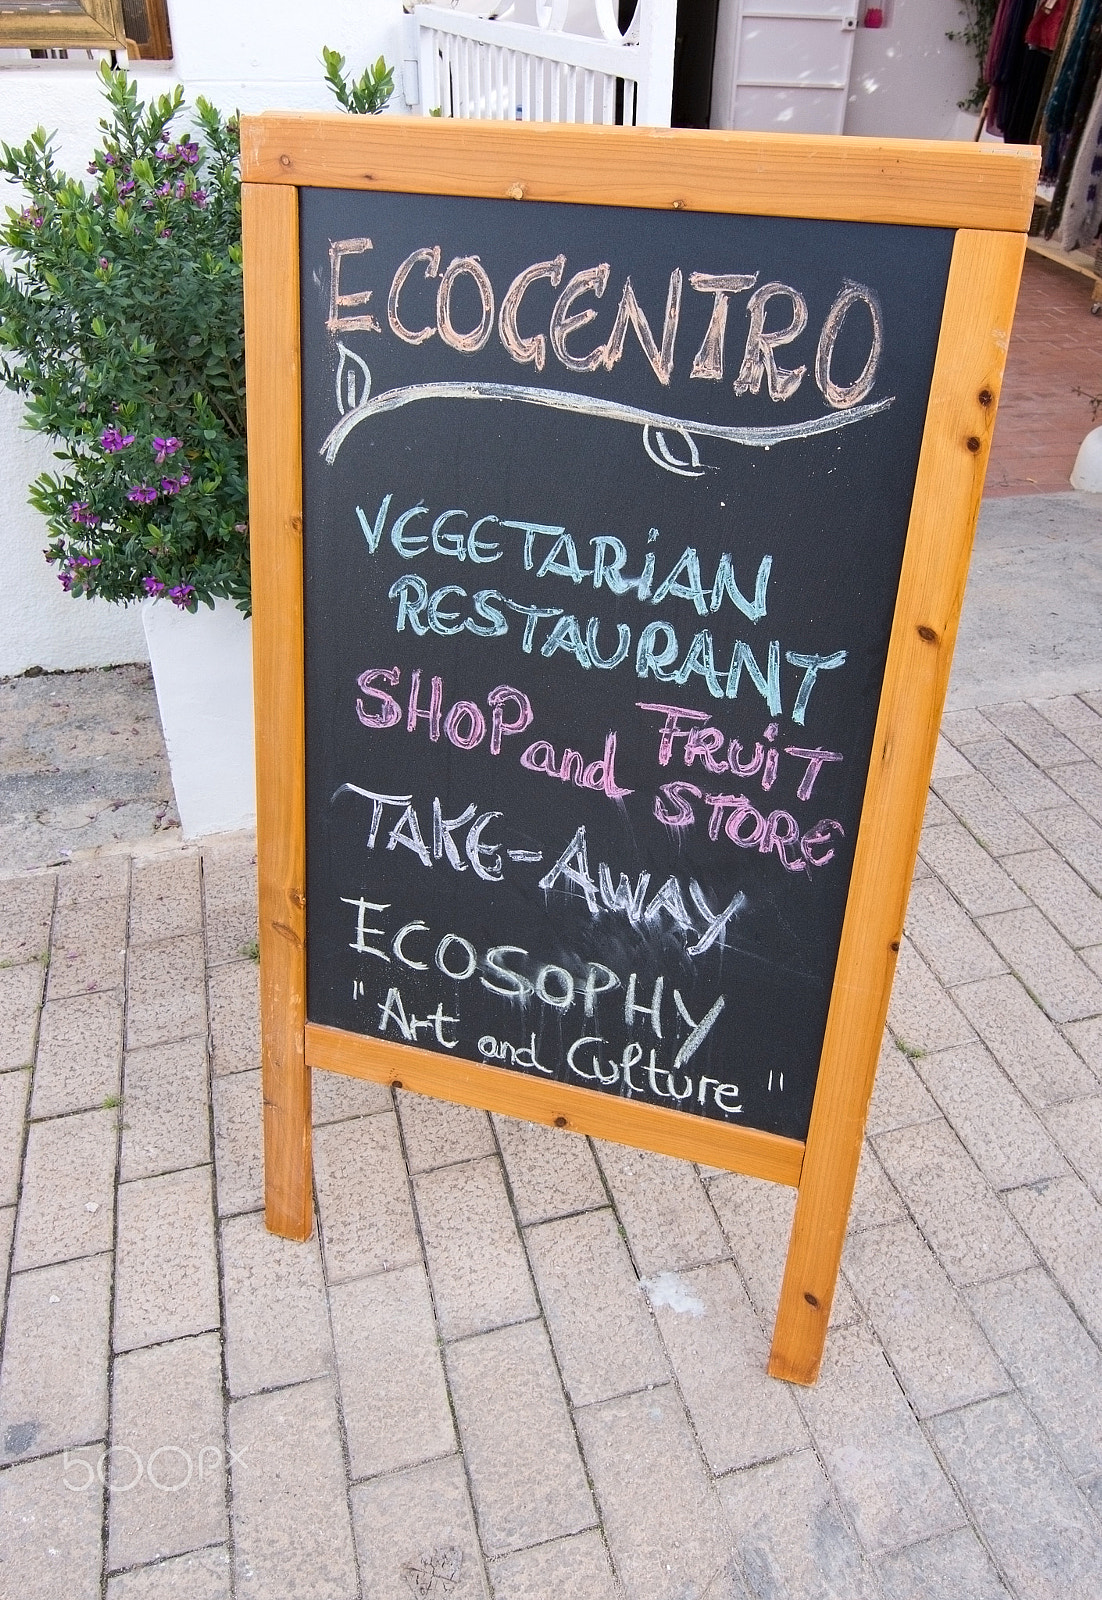 ECOCENTRO
VEGETARiAN
RESTAURANT
SHOP and FRUiT
STORE
TAKE-AWAY
ECOSOPHY
"Art and Culture"
500px